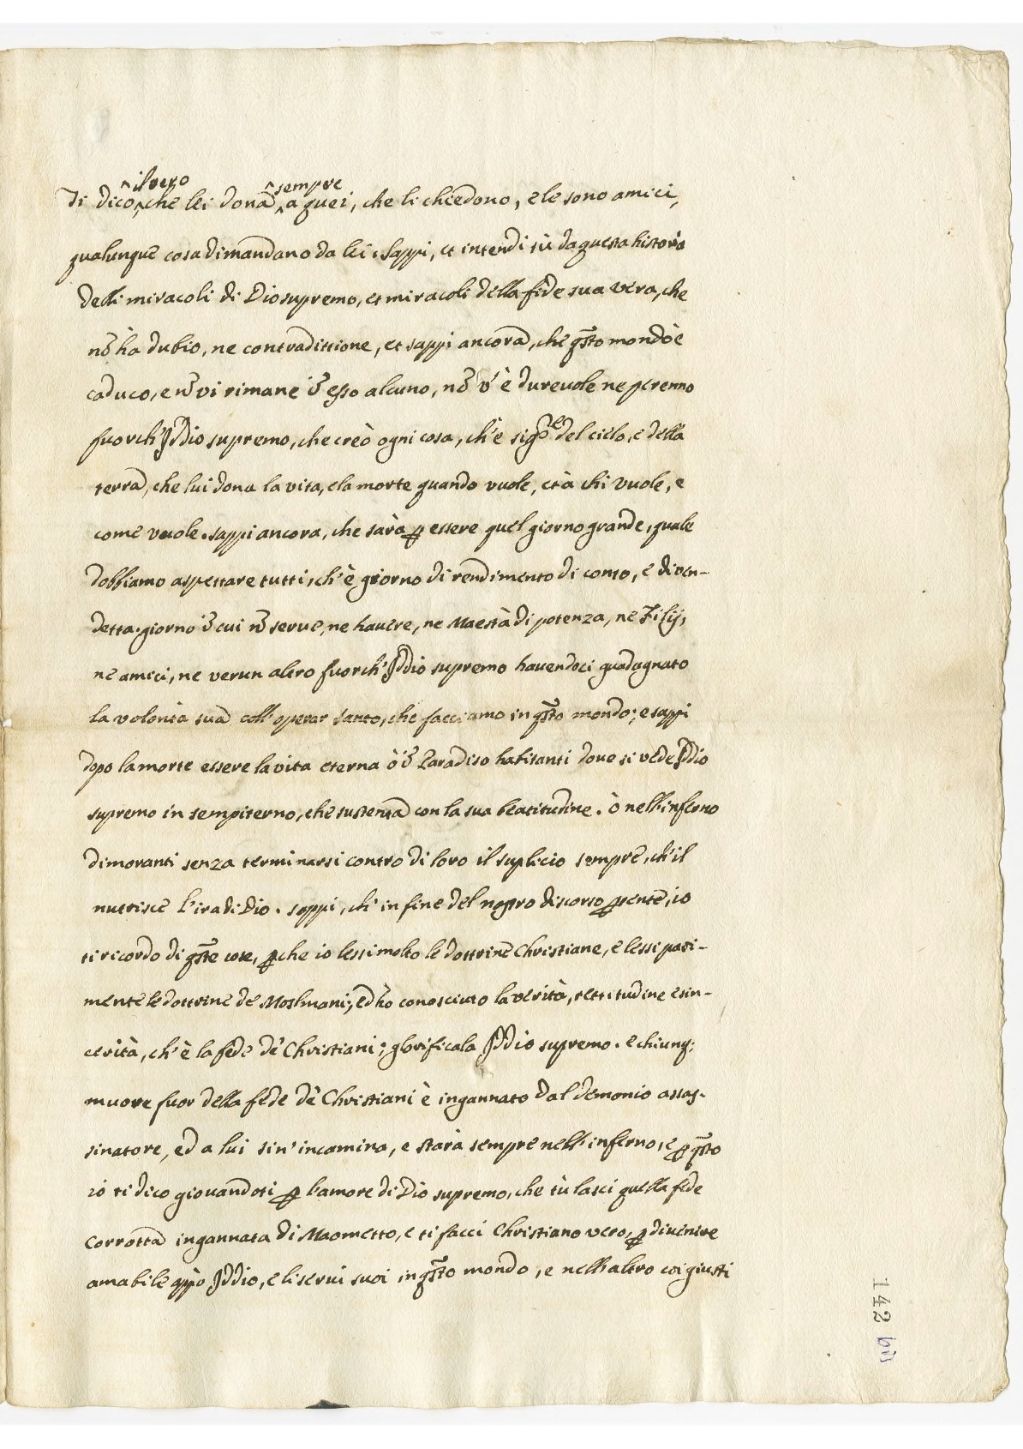 ^il vero ^sempre
Ti dico, che lei dona a quei, che li chiedono, e le sono amici,
qualunque cosa dimandano da lei. Sappi, et intendi tù da questa historia
delli miracoli di Dio supremo, et miracoli della fede sua vera, che
nõ hà dubio, ne contradittione, et sappi ancora, che qsto mondo è
caduco, e nõ vi rimane ĩ esso alcuno, nõ v' è durevole ne perenno
fuorch' Iddio supremo, che creò ogni cosa, ch'è sigre del cielo, e della
terra, che lui dona la vita, e la morte quando vuole, et à chi vuole, e
come vuole. sappi ancora, che sarà p essere quel giorno grande, quale
dobbiamo aspettare tutti, ch' è giorno di rendimento di conto, e di ven-
detta. giorno ĩ cui nõ serve, ne havere, ne Maestà di potenza, ne Figlij,
ne amici, ne verun altro fuorch' Iddio supremo havendoci guadagnato
la volontà sua coll' operar santo, che facciamo in qsto mondo; e sappi
dopo la morte essere la vita eterna ò ĩ Paradiso habitanti dove si vede Iddio
supremo in sempiterno, che sustenta con la sua beatitudine. ò nell' inferno
dimoranti senza terminarsi contro di loro il suplicio sempre, ch' il
nutrisce l'ira di Dio. sappi, ch' in fine del nostro discorso psente, io
ti ricordo di qste cose, pche io lessi molto le dottrine Christiane, e lessi pari-
mente le dottrine de Moslmani; ed hò conosciuto la verità, rettitudine e sin-
cerità, ch' è la fede de' Christiani; glorificala Iddio supremo. e chiunq;
muore fuor della fede dè Christiani è ingannato dal demonio assas-
sinatore, ed a lui s'in' incamina, e starà sempre nell' inferno, e p qsto
io ti dico giovandoti p l'amore di Dio supremo, che tù lasci quella fede
corrotta ingannata di Maometto, e ti facci Christiano vero, p divenire
amabile appò Iddio, e li servi suoi in qsto mondo, e nell' altro coi giusti
142 bis